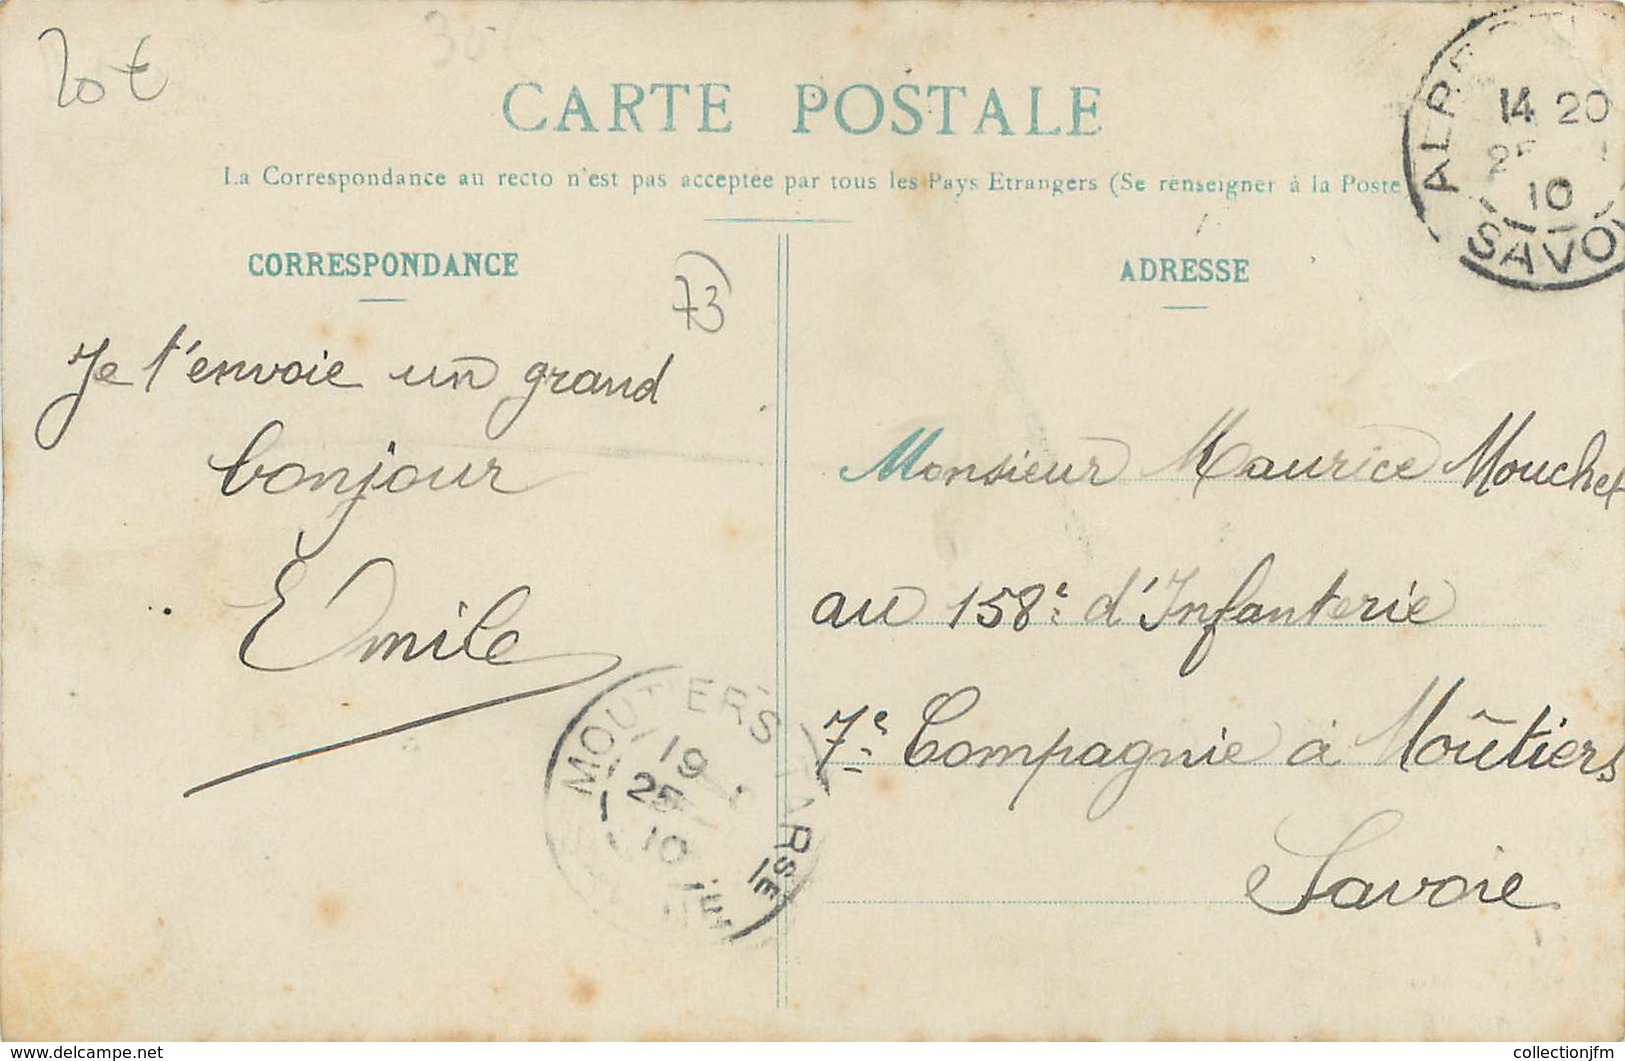 20 €
CARTE POSTALE
La Correspondance au recto n'est pas acceptée par tous les Pays Etrangers (Se renseigner à la Poste
14 20
10
SAVO
CORRESPONDANCE
ADRESSE
73
Je t'envoie un grand
bonjour
Emile
Monsieur Maurice Mouchet
au 158e d'Infanterie
7e Compagnie à Moûtiers
Savoie
MOUTIERS TARSE
19
25
10
www.delcampe.net
collectionjfm